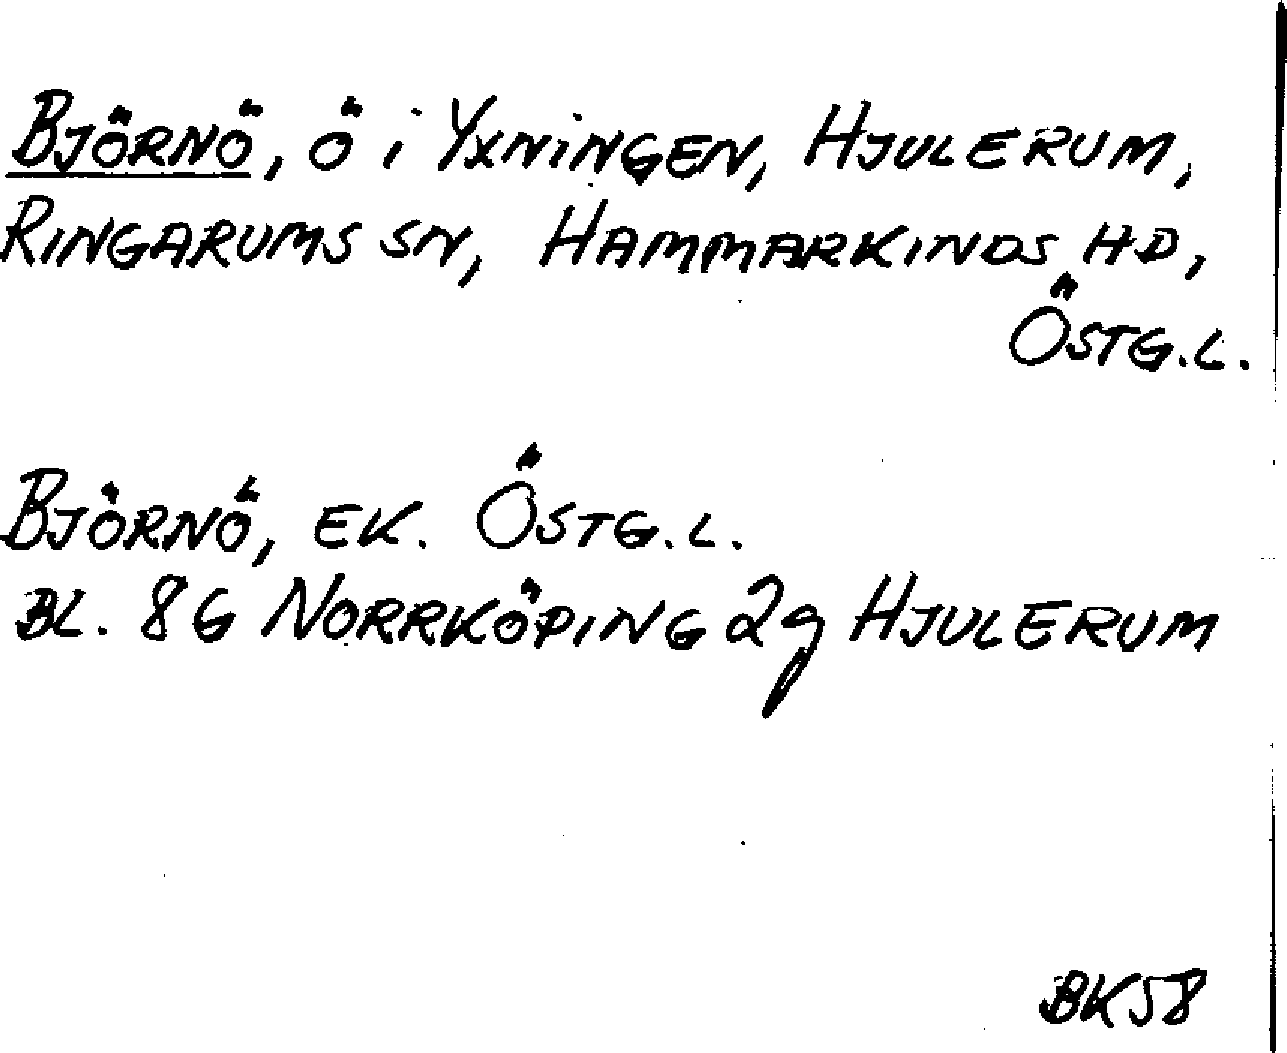 Björnö, ö i Yxningen, Hjulerum,
Ringarums sn, Hammarkinds hd,
Östg.l.
Björnö, ek. Östg.l.
Bl. 8G Norrköping 2g Hjulerum
BK58